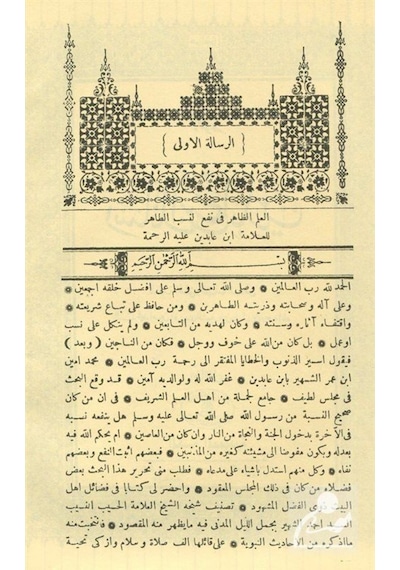 { الرسالة الاولى }
العلم الظاهر فى نفع النسب الطاهر
للعلامة ابن عابدين عليه الرحمة
بسم الله الرحمن الرحيم
الحمد لله رب العالمين * وصلى الله تعالى وسلم على افضل خلقه اجمعين *
وعلى آله وصحابته وذريته الطاهرين * ومن حافظ على اتباع شريعته *
واقتفاء آثاره وسنته * وكان لهديه من التابعين * ولم يتكل على نسب
اوعمل * بل كان من الله على خوف ووجل * فكان من الناجين ( وبعد )
فيقول اسير الذنوب والخطايا المفتقر الى رحمة رب العالمين * محمد امين
ابن عمر الشهير بابن عابدين * غفر الله له ولوالديه آمين * قد وقع البحث
فى مجلس لطيف * جامع لجملة من اهل العلم الشريف * فى ان من كان
صحيح النسبة من رسول الله صلى الله تعالى عليه وسلم هل ينفعه نسبه
فى الآخرة بدخول الجنة والنجاة من النار وان كان من العاصين * ام يحكم الله فيه
بعدله ويكون مفوضا الى مشيئته كغيره من المذنبين * فبعضهم اثبت النفع وبعضهم
نفاه * وكل منهم استدل باشياء على مدعاه * فطلب منى تحرير هذا البحث بعض
فضلاء من كان فى ذلك المجلس المعقود * واحضر لى كتابا فى فضائل اهل
البيت ذوى الفضل المشهود * تصنيف شيخه الشيخ العلامة الحسيب النسيب
السيد احمد الشهير بجمل الليل المدنى فيه ما يظهر منه المقصود * فانتخبت منه
ما اذكره من الاحاديث النبوية * على قائلها الف صلاة وسلام وازكى تحية